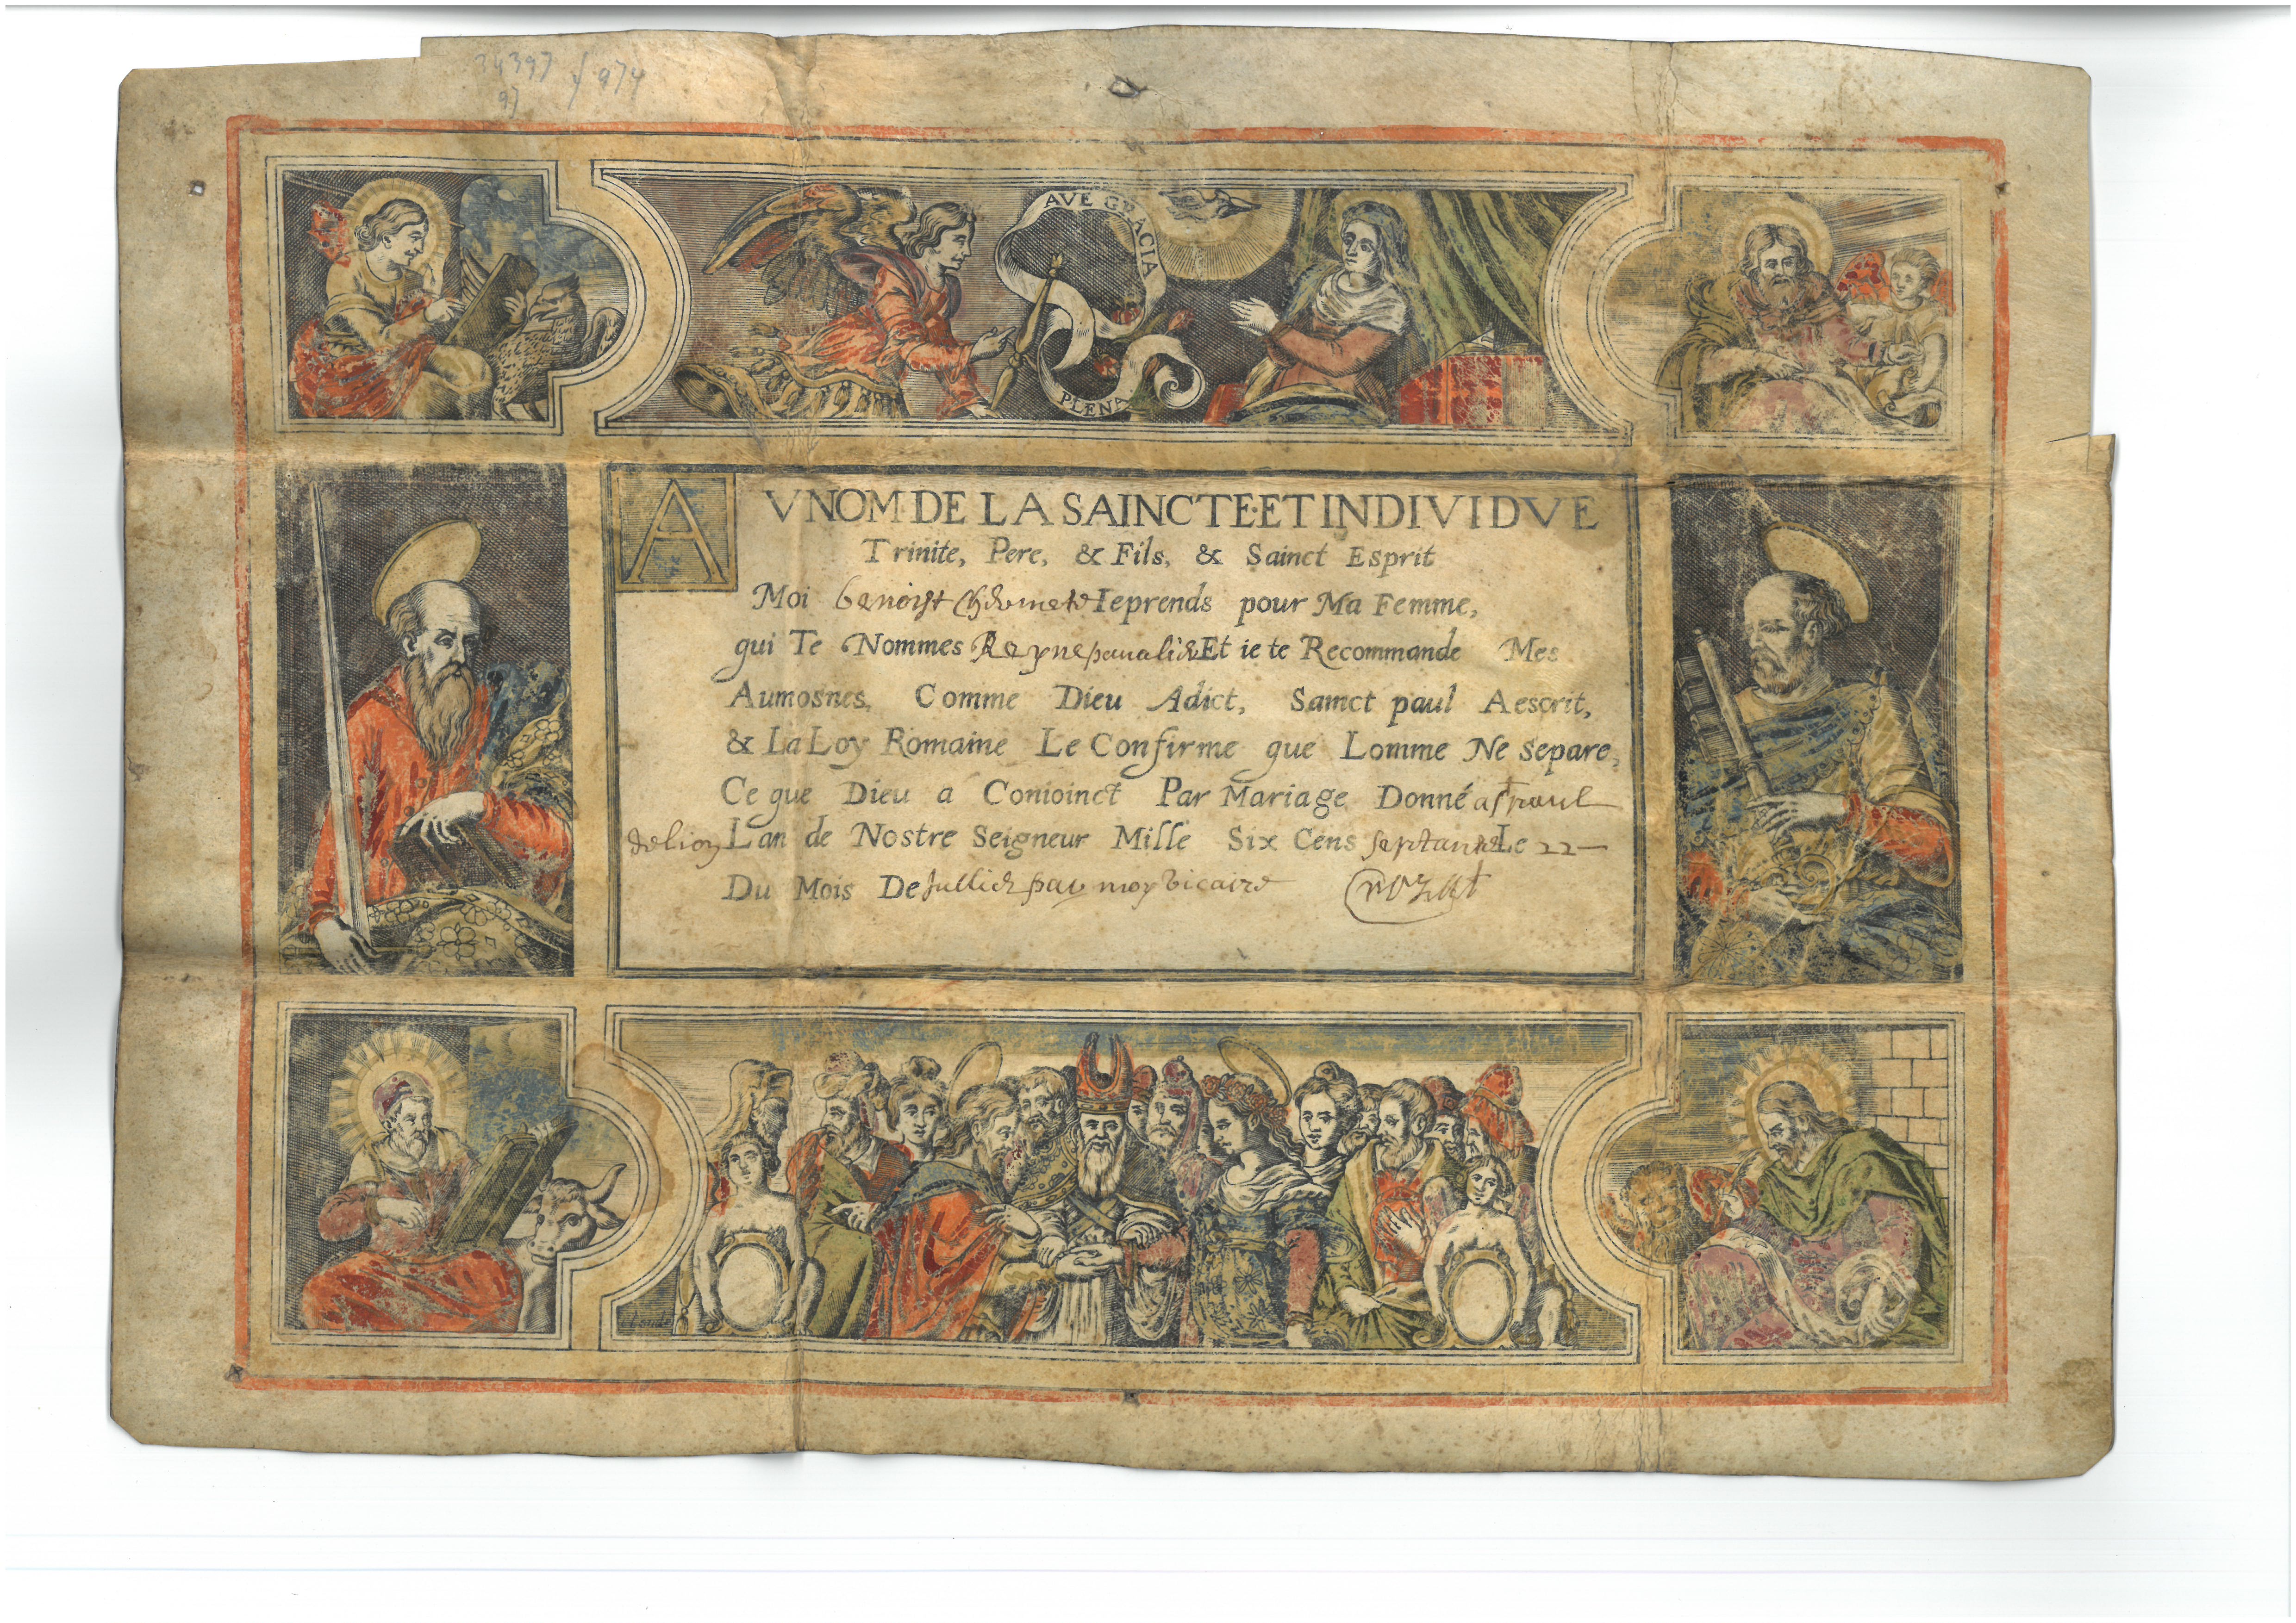 34397
97
974
AVE GRACIA
PLENA
AVNOM DE LA SAINCTE·ET INDIVIDVE
Trinite, Pere, & Fils, & Sainct Esprit
Moi benoist Ieprends pour Ma Femme,
qui Te Nommes Reyne Et ie te Recommande Mes
Aumosnes, Comme Dieu Adict, Sainct paul Aescrit,
& La Loy Romaine Le Confirme que Lomme Ne Separe,
Ce que Dieu a Conioinct Par Mariage Donné a St paul
de lion Lan de Nostre Seigneur Mille Six Cens septante Le 22
Du Mois De Julliet par moy vicaire